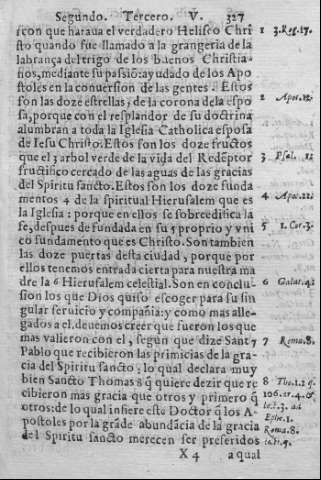 Segundo. Tercero. V. 327
con que haraua el verdadero Heliseo Chri
sto quando fue llamado a la grangeria de la
labrança del trigo de los buenos Christia-
nos, mediante su passiõ: ayudado de los Apo
stoles en la conuersion de las gentes. Estos
son las doze estrellas, de la corona de la espo
sa, porque con el resplandor de su doctrina
alumbran a toda la Iglesia Catholica esposa
de Iesu Christo: Estos son los doze fructos
que el 3 arbol verde de la vida del Redẽptor
fructifico cercado de las aguas de las gracias
del Spiritu sancto. Estos son los doze funda
mentos 4 de la spiritual Hierusalem que es
la Iglesia: porque en ellos se sobreedifica la
fe, despues de fundada en su 5 proprio y vni
co fundamento que es Christo. Son tambien
las doze puertas desta ciudad, porque por
ellos tenemos entrada cierta para nuestra ma
dre la 6 Hierusalem celestial. Son en conclu
sion los que Dios quiso escoger para su sin
gular seruicio y compañia: y como mas alle-
gados a el, deuemos creer que fueron los que
mas valieron con el, segun que dize Sant 7
Pablo que recibieron las primicias de la gra-
cia del Spiritu sancto: lo qual declara muy
bien Sancto Thomas 8 q̃ quiere dezir que re
cibieron mas gracia que otros y primero q̃
otros: de lo qual infiere este Doctor q̃ los A-
postoles por la grãde abundãcia de la gracia
del Spiritu sancto merecen ser preferidos
X 4 a qual
1 3. Reg. 17.
2 Apoc. 12.
3 Psal. 12
4 Apoc. 22.
5 1. Cor. 3.
6 Galat. 4.
7 Roma. 8.
8 Tho. 1. 2 q.
106. ar. 4. &
lect. 3. ad
Ephe. 1.
Roma. 8.
lect. 5.